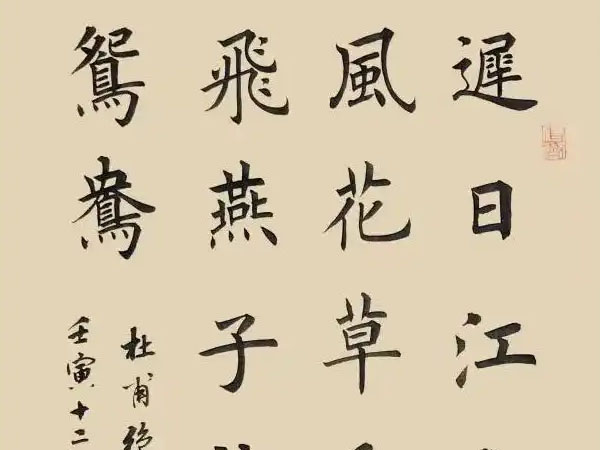 遲日江
風花草
飛燕子
鴛鴦
杜甫
壬寅十二